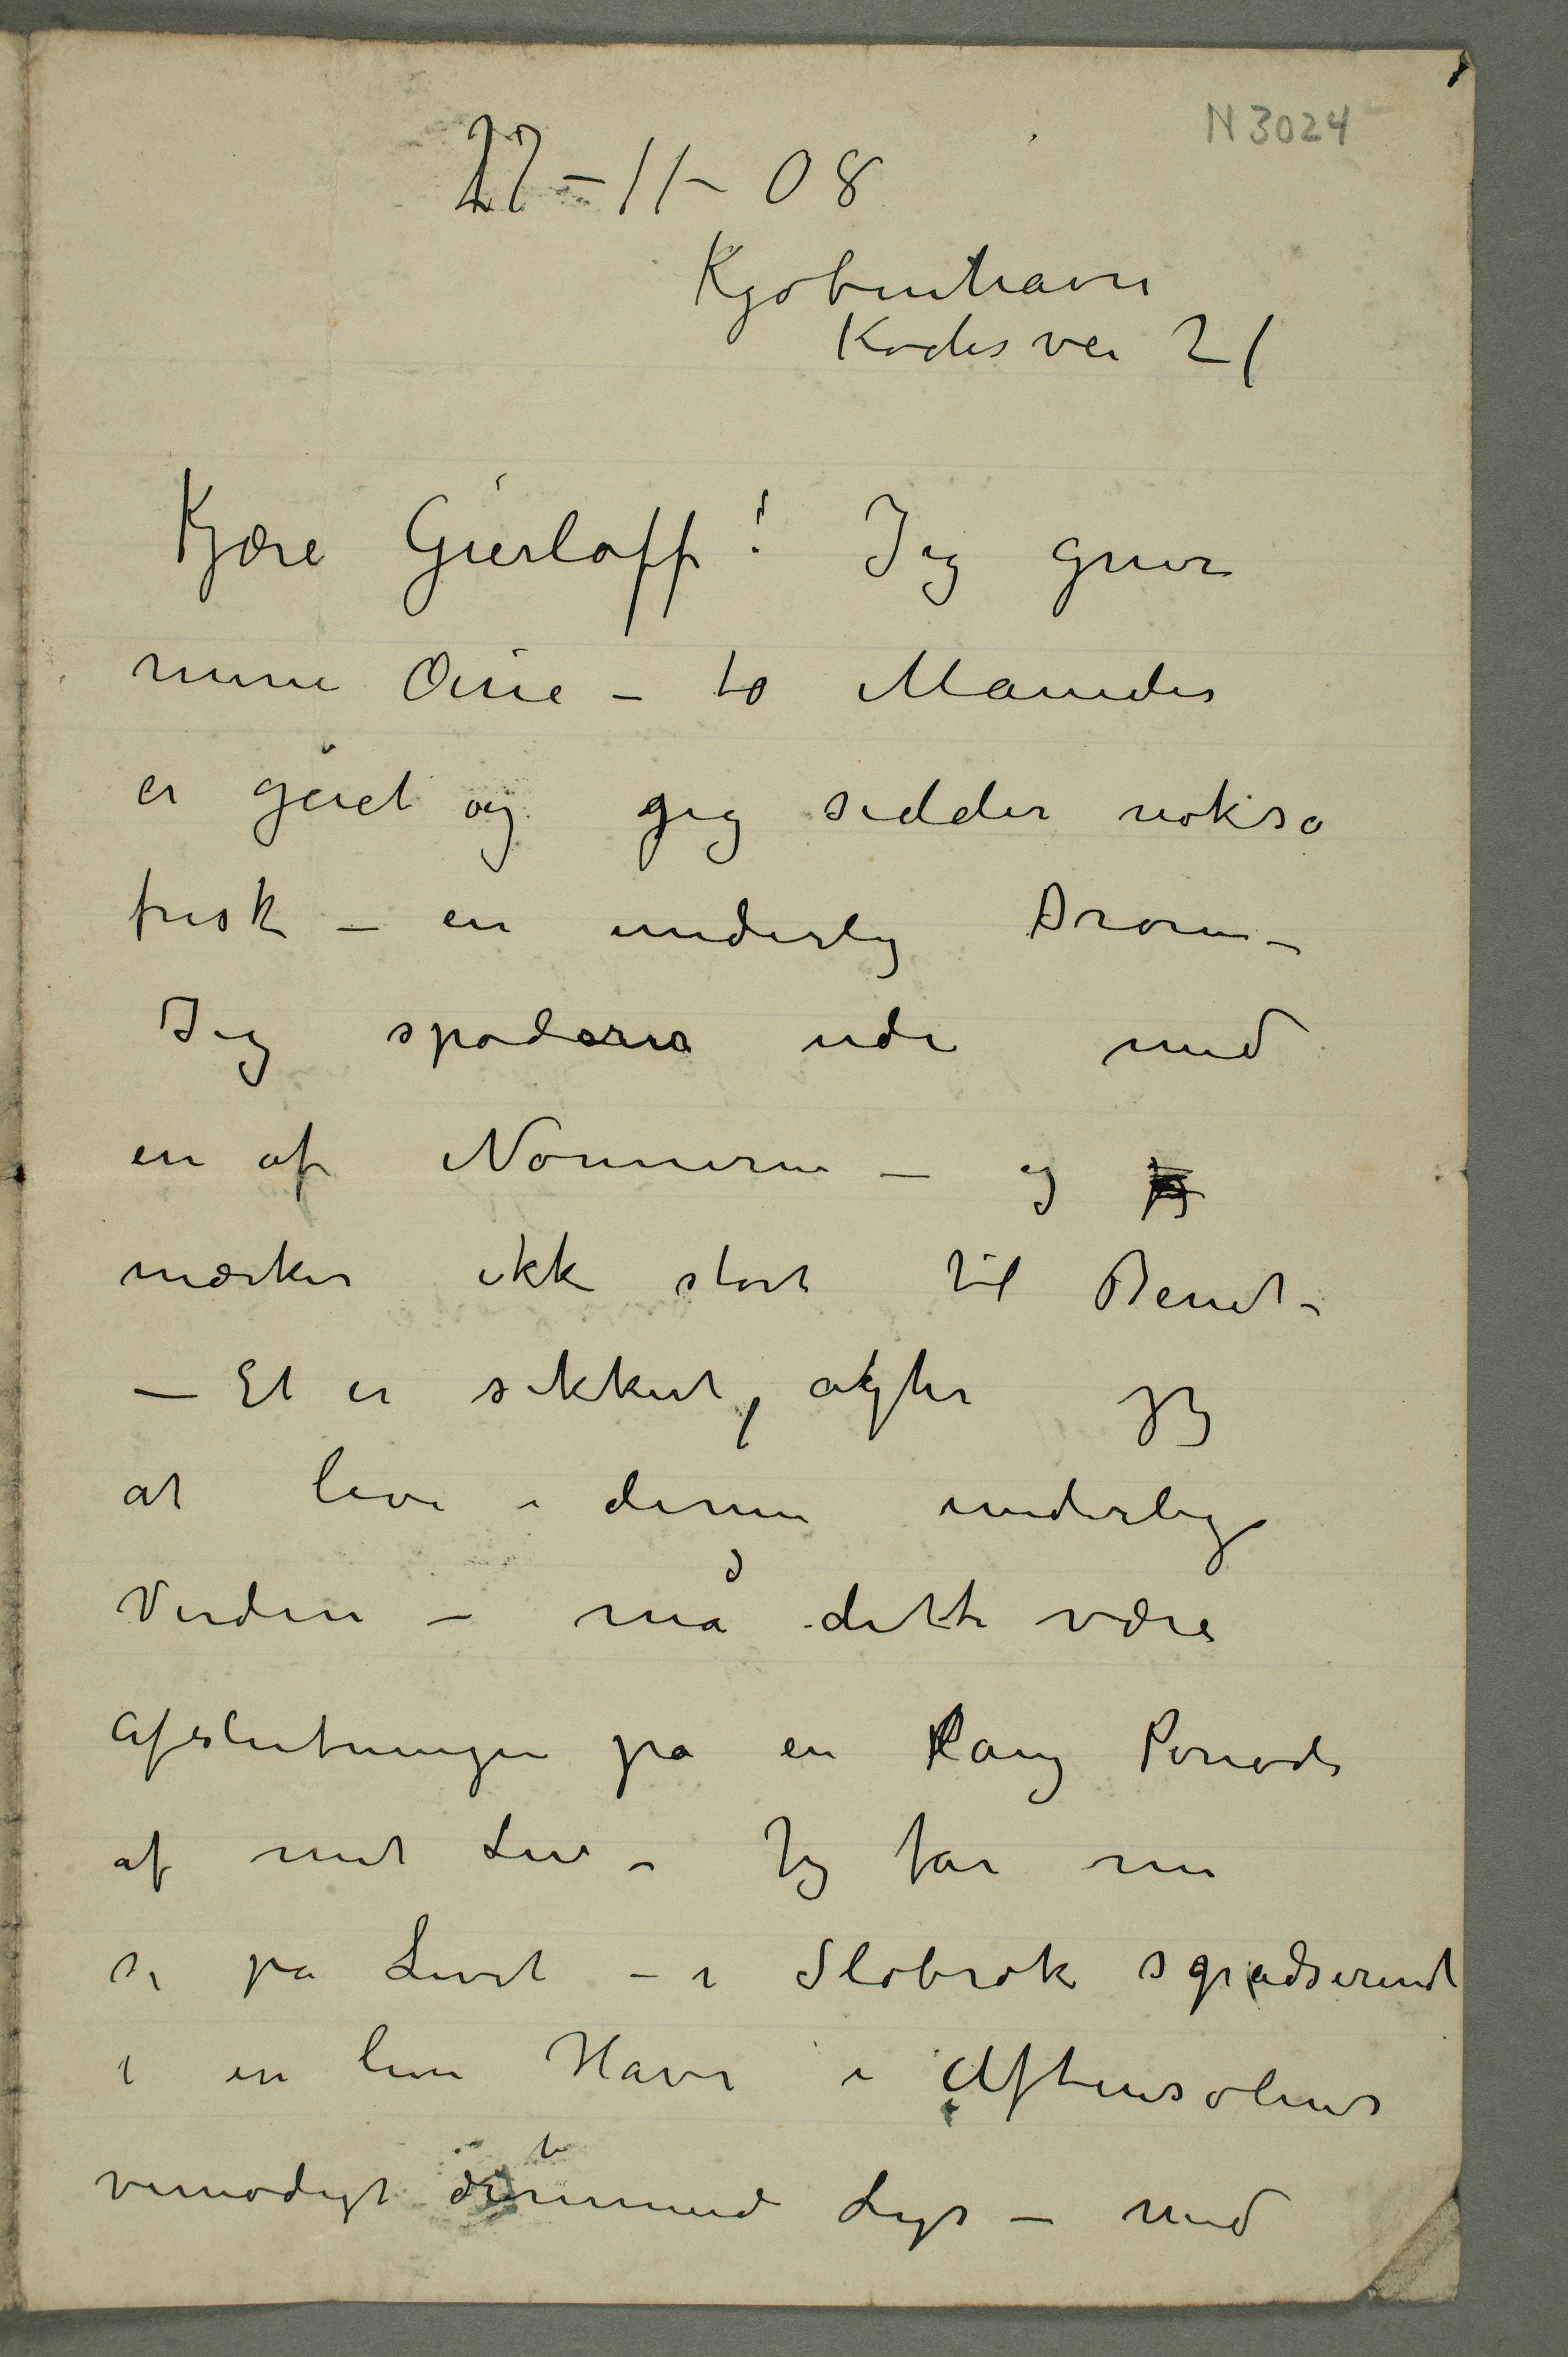 N 3024
27-11-08
Kjøbenhavn
Kochsvei 21
Kjære Gierløff! Jeg gnir
mine Øine – to Maaneder
er gåiet og jeg sidder nokså
frisk – en underlig Drøm –
Jeg spadserer ude med
en af Nonnerne – og
mærker ikke stort til Benet –
– Et er sikkert, agter jeg
at leve i denne underlige
Verden – må dette være
Afslutningen på en lang Periode
af mit Liv – Jeg får nu
se på Livet – i Slobrok spadserende
i en liden Have i Aftensolens
vemodigt drømmende Lys – med